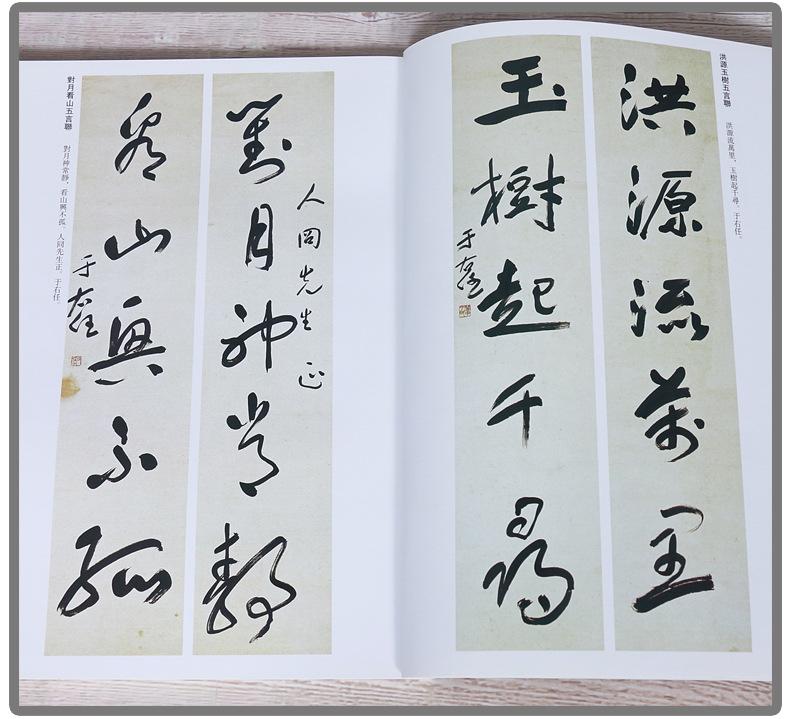 洪源玉樹五言聯
洪源流萬里，玉樹起千尋。于右任。
洪源流萬里
玉樹起千尋
于右任
對月看山五言聯
對月神常靜，看山興不孤。人岡先生正。于右任。
對月神常靜
人岡先生正
看山興不孤
于右任